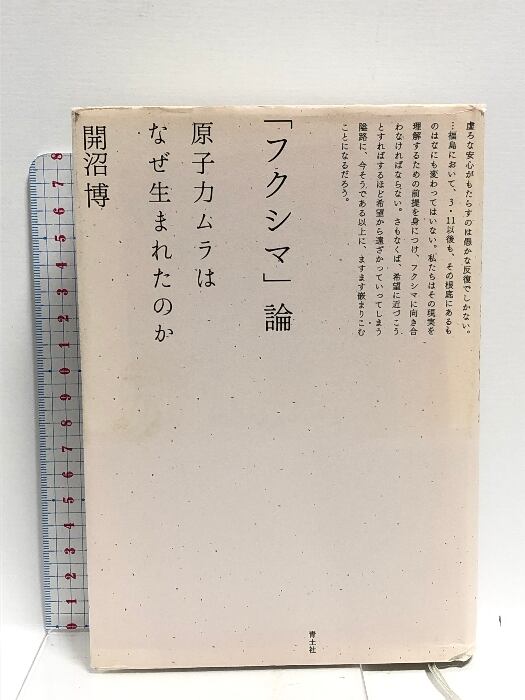 虚ろな安心がもたらすのは愚かな反復でしかない。
…福島において、3・11以後も、その根底にあるも
のはなにも変わってはいない。私たちはその現実を
理解するための前提を身につけ、フクシマに向き合
わなければならない。さもなくば、希望に近づこう
とすればするほど希望から遠ざかっていってしまう
隘路に、今そうである以上に、ますます嵌まりこむ
ことになるだろう。
「フクシマ」論
原子力ムラは
なぜ生まれたのか
開沼博
青土社
8
7
6
5
4
3
2
1
0
9
8
7
6
5
4
3
2
1
0